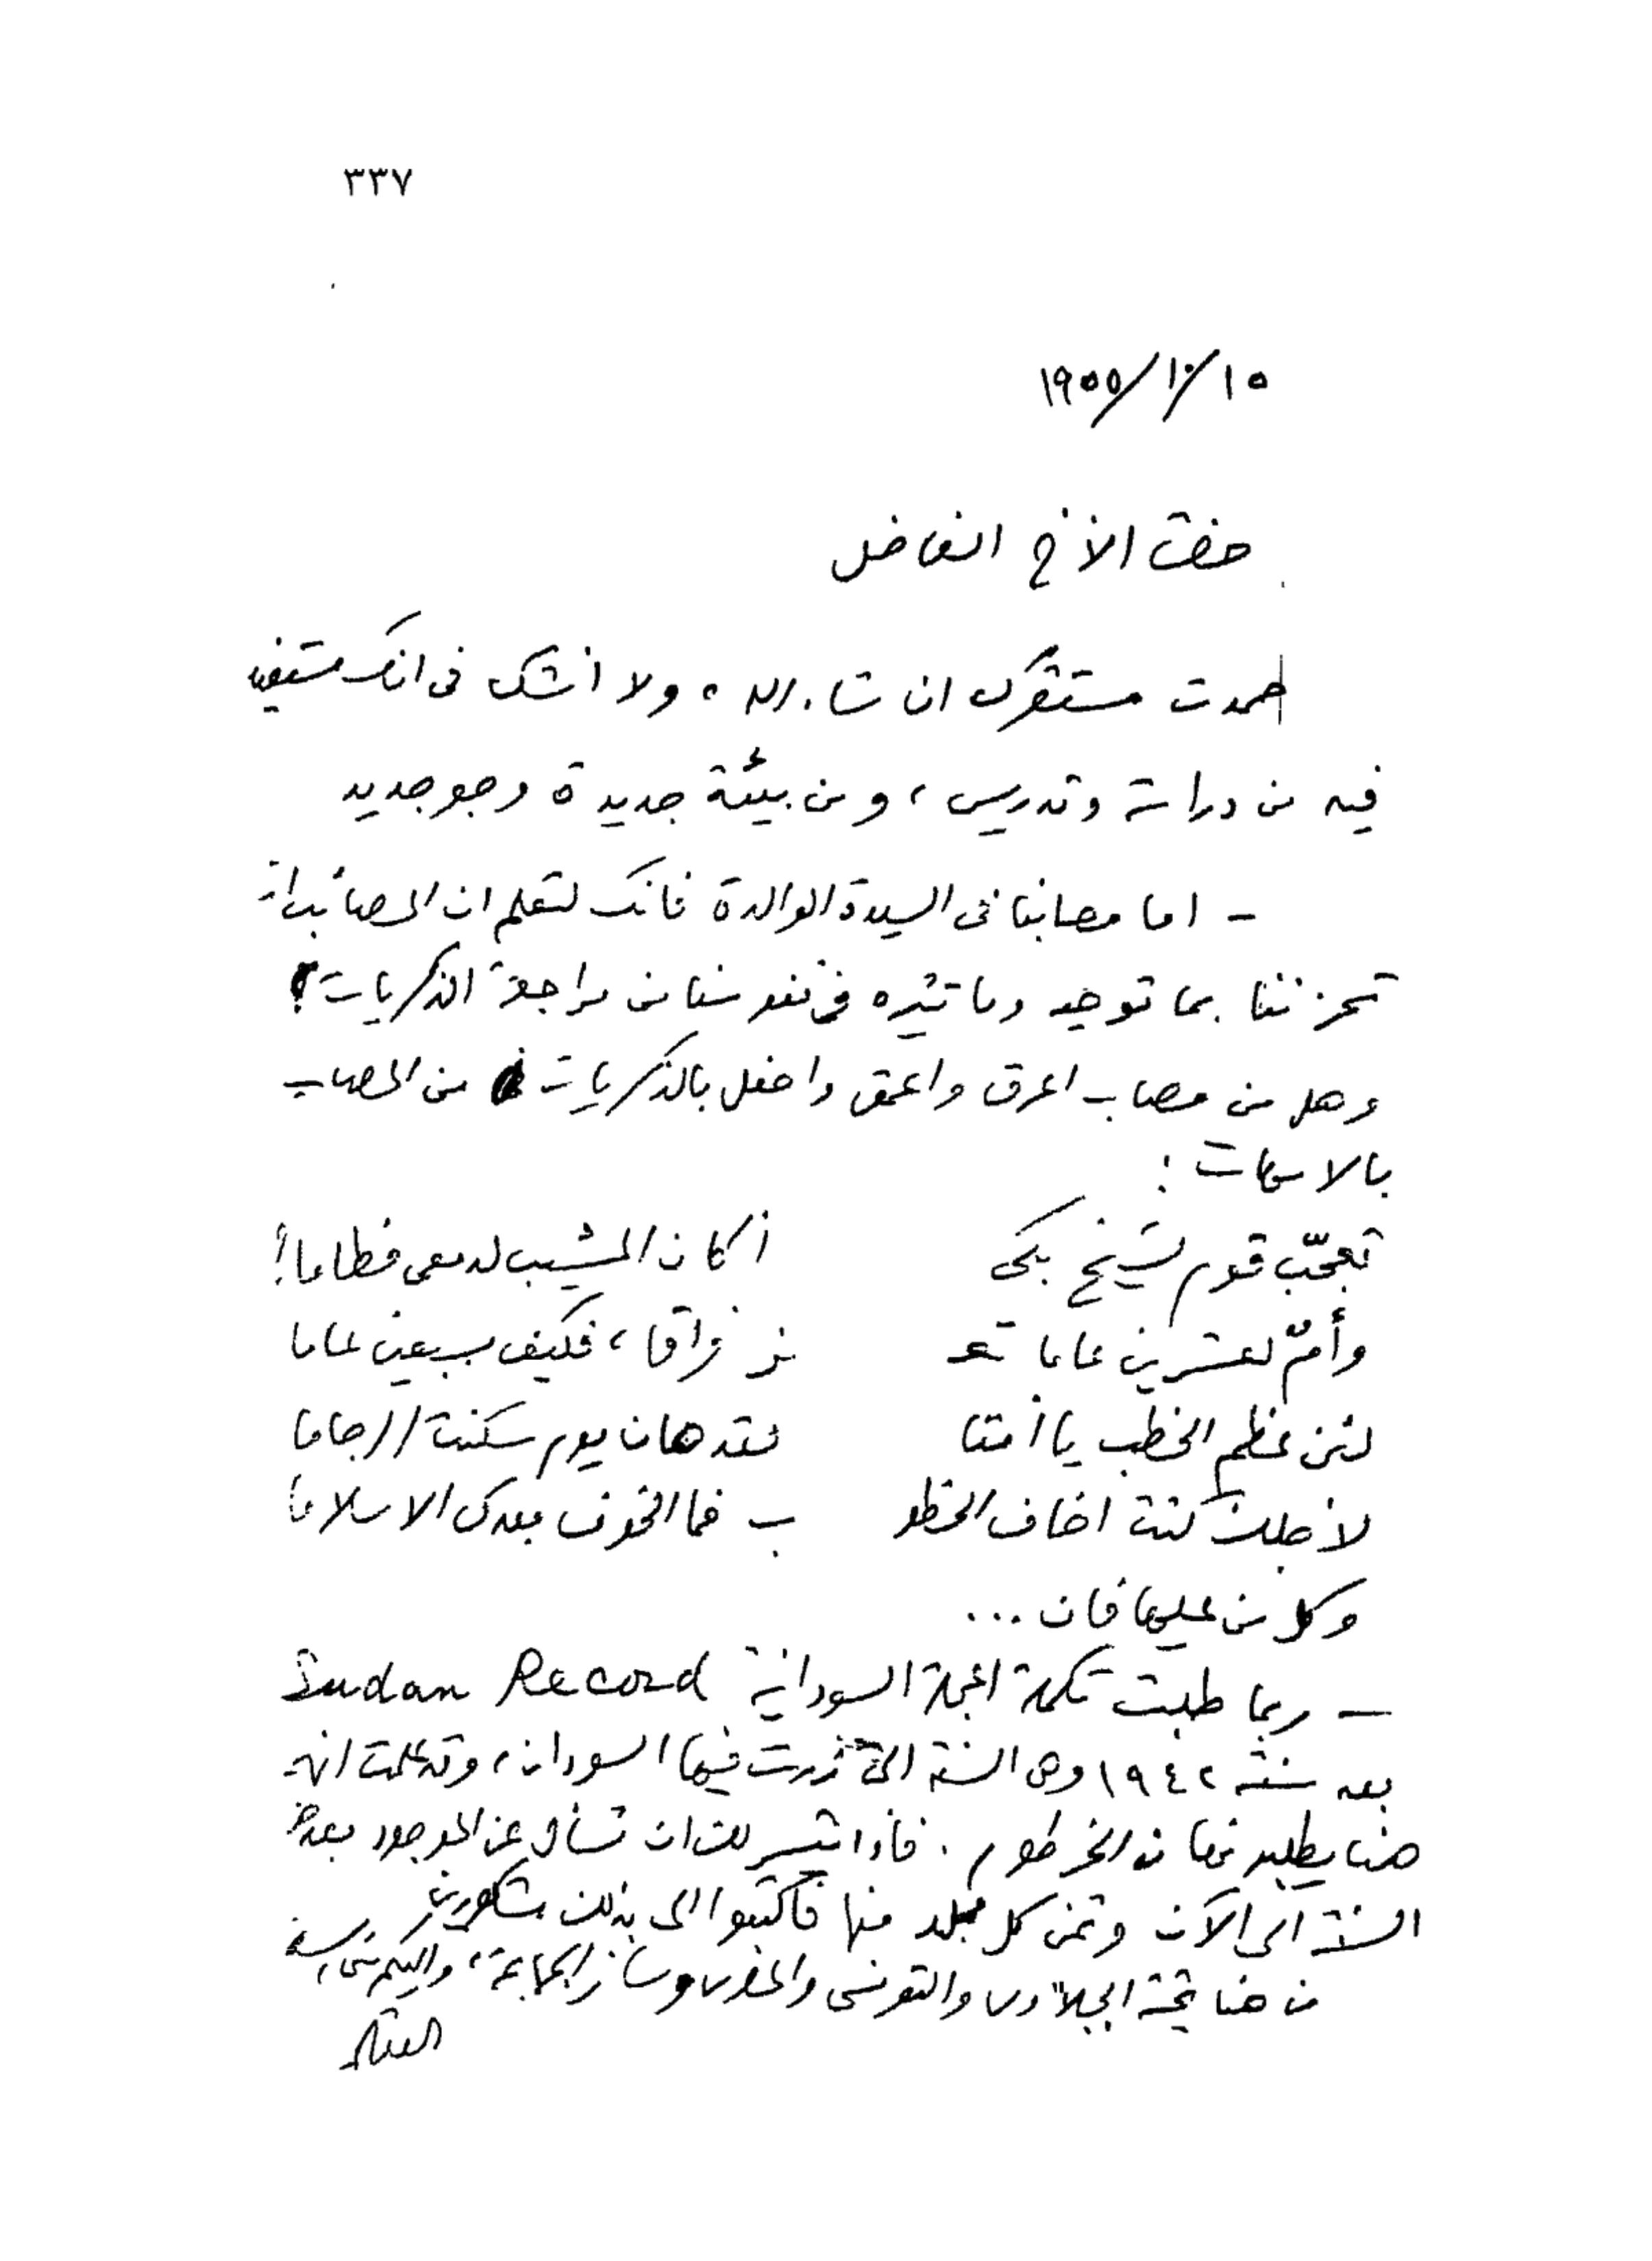 ٣٣٧
١٥/١٠/١٩٥٥
حضرة الأخ الفاضل
حمدت مستقرك ان شاء الله، ولا أشك فى انك مستفيد
فيه من دراسة وتدريس، ومن بيئة جديدة وجو جديد
– اما مصابنا فى السيدة الوالدة فانك لتعلم ان المصائب انما
تحزننا بما توحيه وما تثيره فى نفوسنا من مراجعة الذكريات؟
وهل من مصاب اعرق واعمق واحفل بالذكريات من المصاب
بالامهات:
تعجّب قوم لشيخ بكى أكان المشيب لدمعى فطاما!
وأمّ لعشرين عاما تعـ ـز فراقا، فكيف بسبعين عاما
لئن عظم الخطب يا أمتا لقد هان يوم سكنت الرجاما
لأجلك كنت اخاف الخطو ب فما الخوف بعدك الا سلاما
وكل من عليها فان ...
– ربما طلبت تكملة المجلة السودانية Sudan Record
بعد سنة ١٩٤٢ وهى السنة التى زرت فيها السودان، وقد علمت انها
هنا يطلبونها من الخرطوم. فاذا تيسر لك ان تسأل عن الموجود بعد هذه
السنة الى الآن وثمن كل مجلد منها فاكتبوا الى بذلك مشكورين
من هنا تحية الجبلاوى والتونسى والمغربى وسائر الجماعة، واليكم منى السلام
العقاد